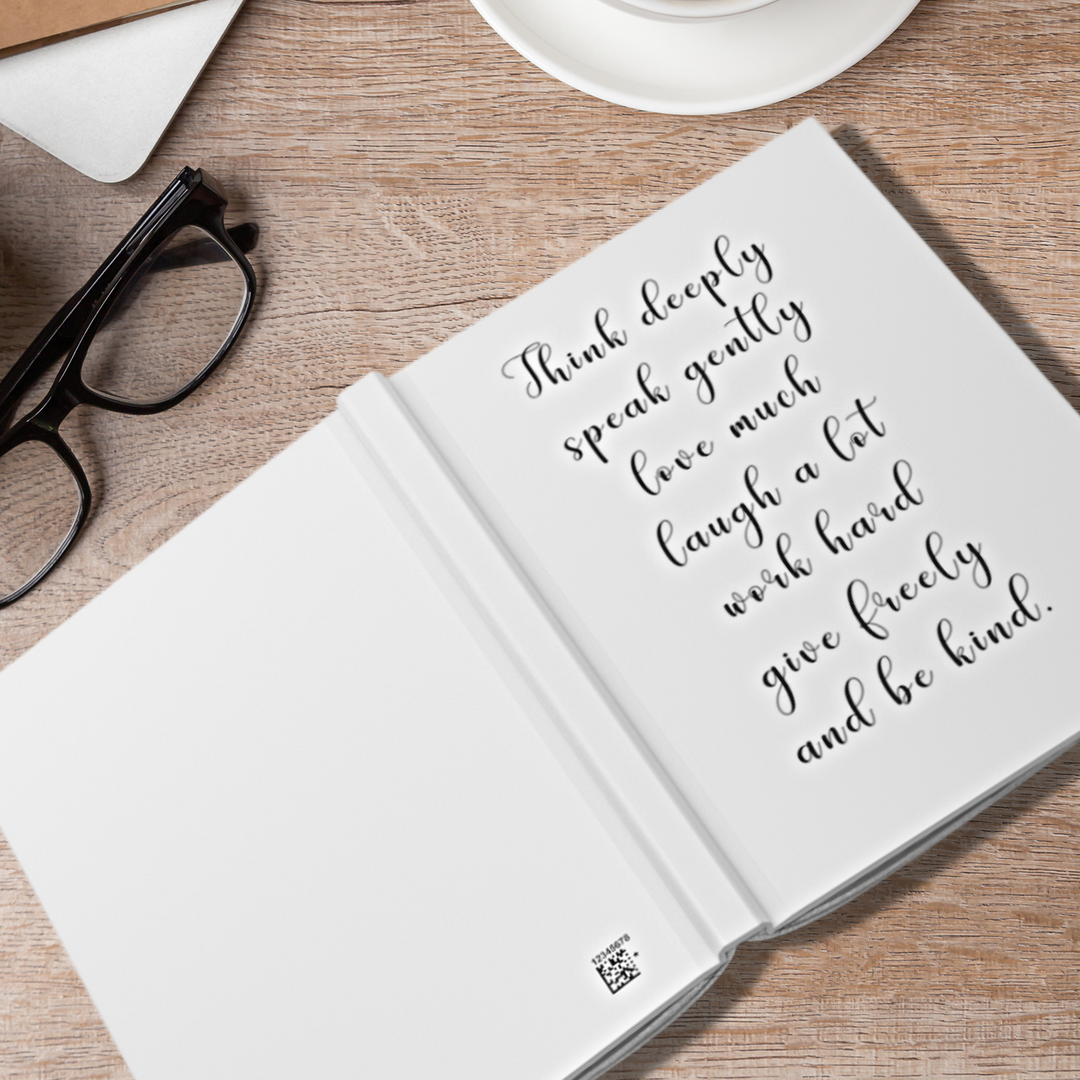 Think deeply
speak gently
love much
laugh a lot
work hard
give freely
and be kind.
12345678